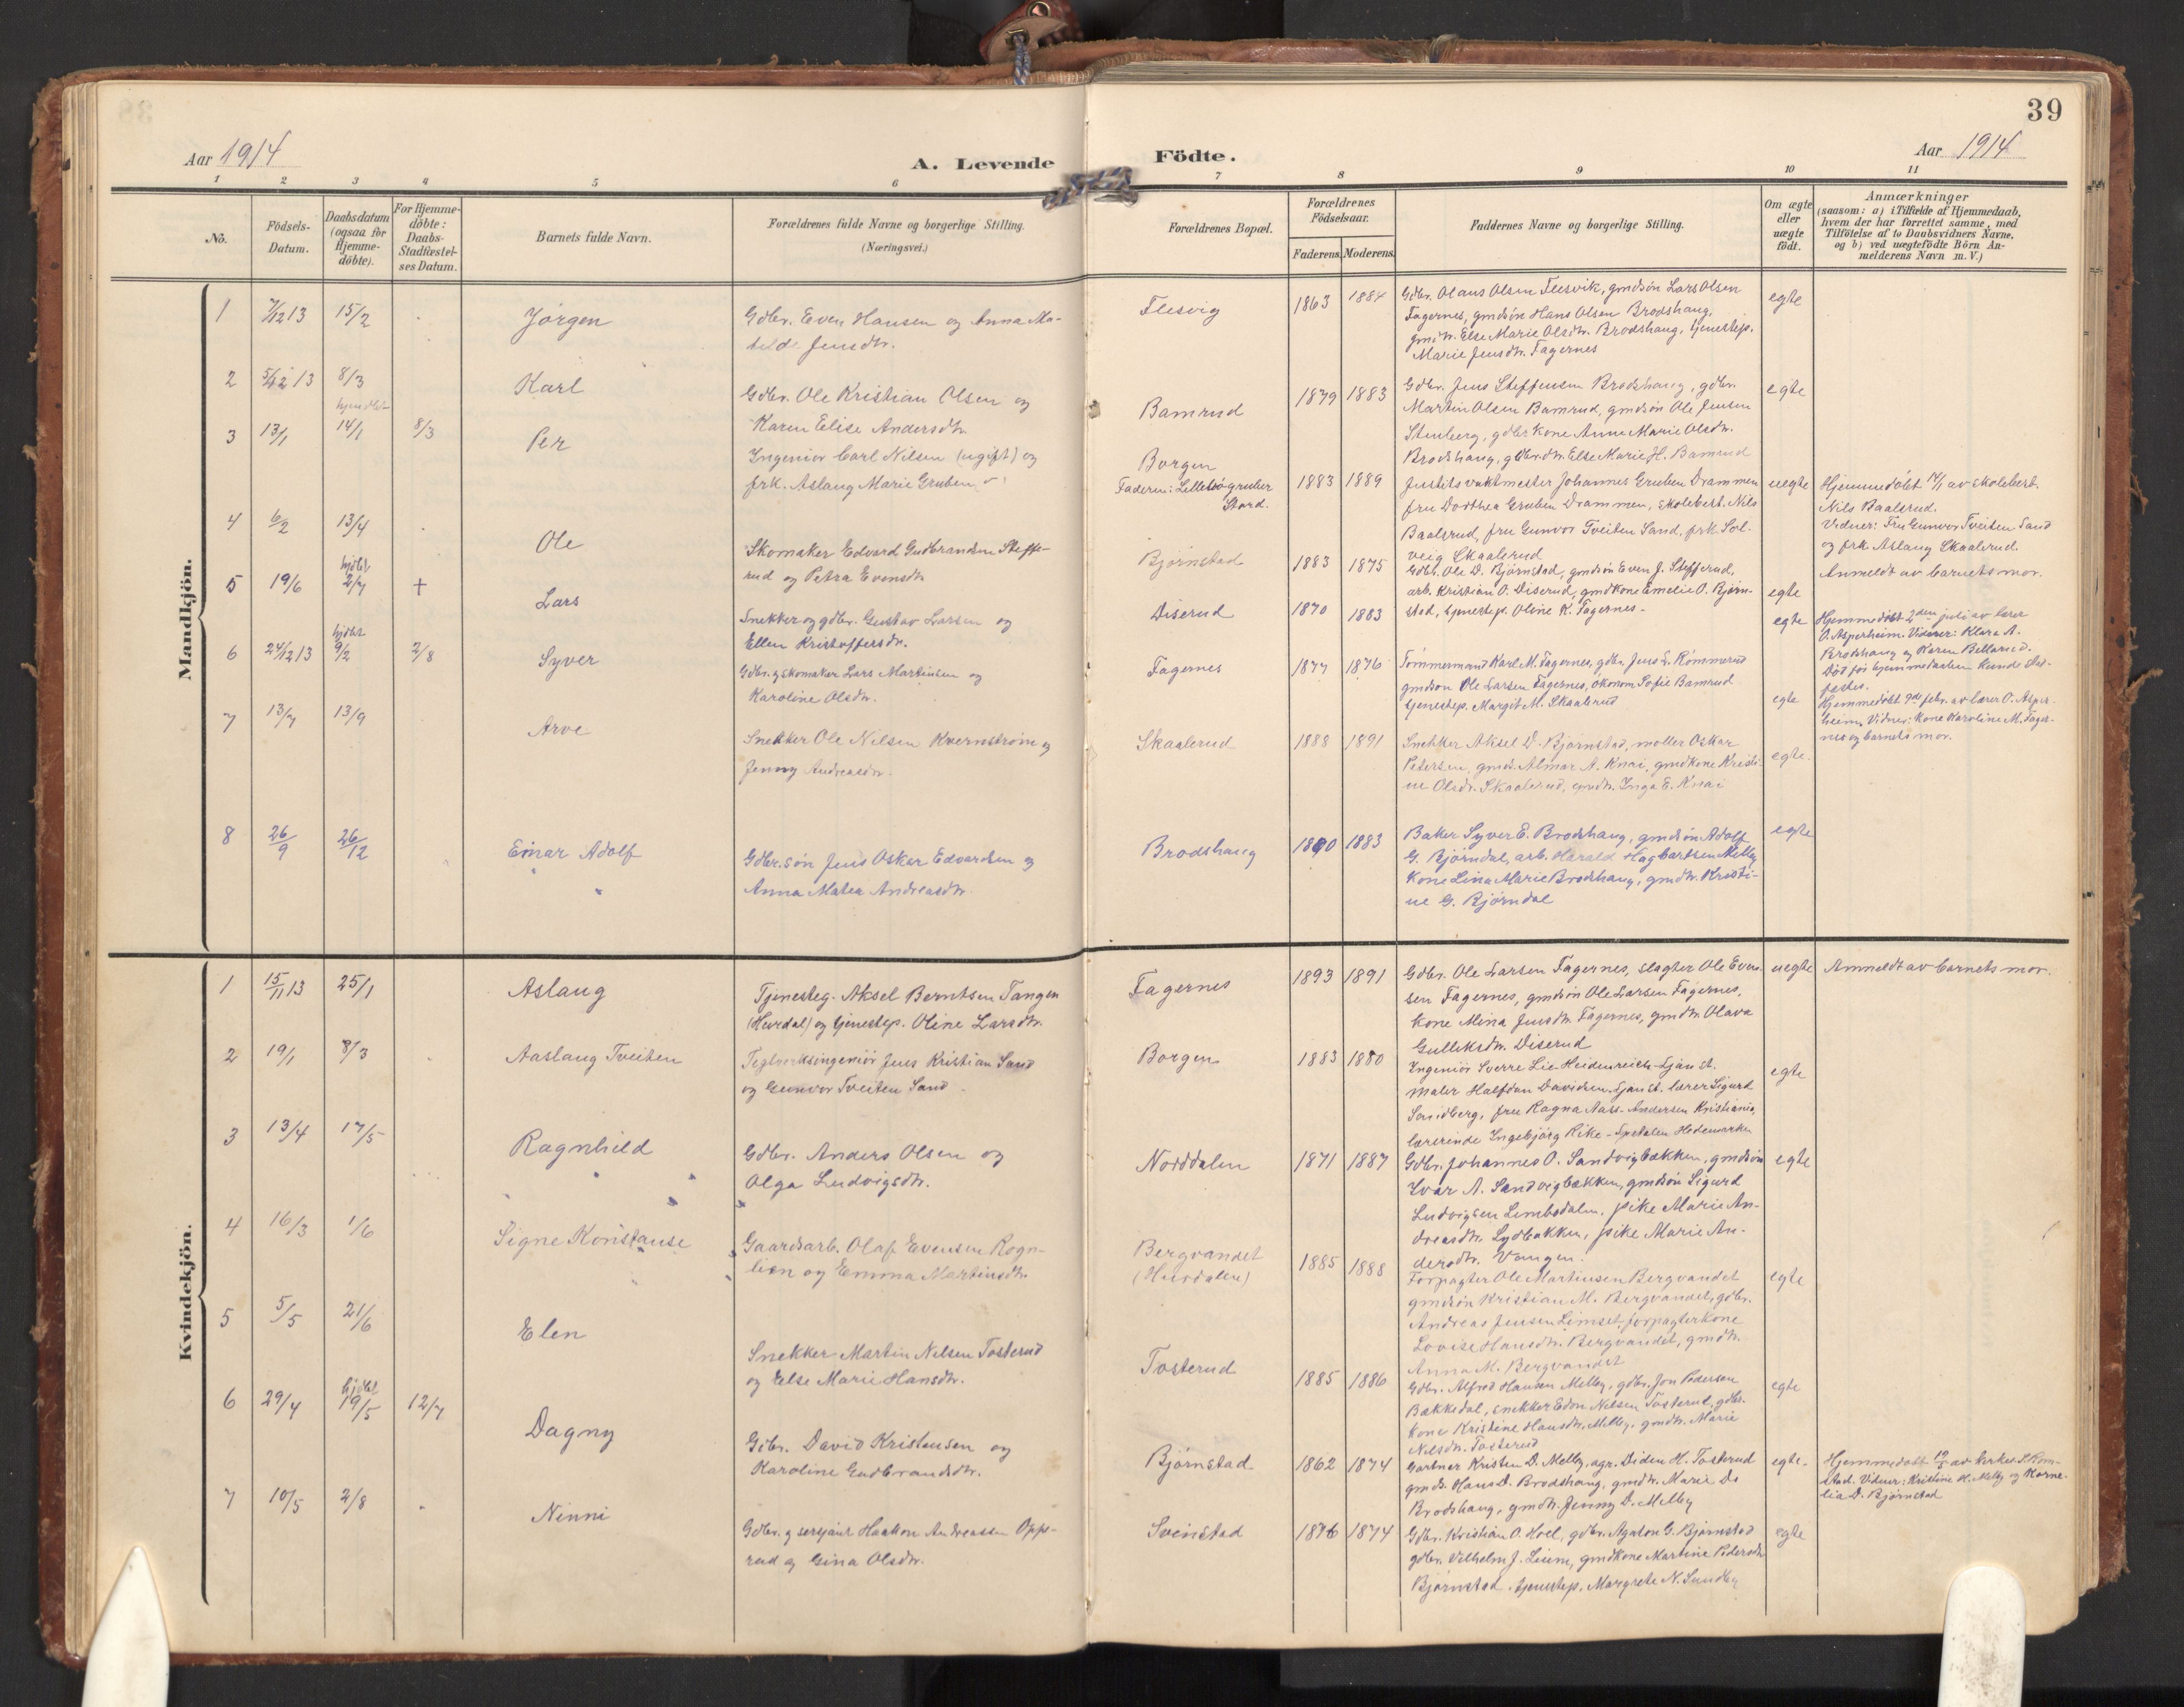 39
Aar 1914
A. Levende Födte.
Aar 1914
1 2 3 4 5 6 7 8 9 10 11
No.
Födsels-
Datum.
Daabsdatum
(ogsaa for
Hjemme-
döbte).
For Hjemme-
döbte:
Daabs-
Stadfæstel-
ses Datum.
Barnets fulde Navn.
Forældrenes fulde Navne og borgerlige Stilling.
(Næringsvei.)
Forældrenes Bopæl.
Forældrenes
Födselsaar.
Faderens. Moderens.
Faddernes Navne og borgerlige Stilling.
Om ægte
eller
uægte
födt.
Anmærkninger
(saasom: a) i Tilfælde af Hjemmedaab,
hvem der har forrettet samme, med
Tilföielse af to Daabsvidners Navne,
og b) ved uægtefödte Börn An-
melderens Navn m. V.)
Mandkjön.
1 7/12 13 15/2 Jörgen
Gdbr. Even Hansen og Anna Ma-
tilde Jensdtr.
Flesvig 1863 1884
Gdbr. Olaus Olsen Flesvik, gmdsön Lars Olsen
Fagernes, gmdsön Hans Olsen Brodshaug,
gmdtr. Else Marie Olsdtr. Brodshaug, tjenestep.
Marie Jensdtr. Fagernes
egte
2 5/12 13 8/3 Karl
Gdbr. Ole Kristian Olsen og
Karen Elise Andersdtr.
Bamrud 1879 1883
Gdbr. Jens Steffensen Brodshaug, gdbr.
Martin Olsen Bamrud, gmdsön Ole Jensen
Stenberg, gdbr kone Anne Marie Olsdtr.
Brodshaug, gdbr.dtr. Else Marie H. Bamrud
egte
3 13/1 hjemdöbt 14/1 8/3 Per
Ingeniör Carl Nilsen (ugift) og
frk. Aslaug Marie Gruben
Borgen
Faderen: Lillebögruber
Stord.
1883 1889
Justitsvaktmester Johannes Gruben Drammen
fru Dorthea Gruben Drammen, skolebest. Nils
Baalsrud, fru Gunvor Tveiten Sand, frk. Sol-
veig Skaalerud
uegte
Hjemmedöbt 14/1 av skolebest.
Nils Baalsrud.
Vidner: Fru Gunvor Tveiten Sand
og frk. Aslaug Skaalerud.
Anmeldt av barnets mor.
4 6/2 13/4 Ole
Skomaker Edvard Gudbrandsen Steffe-
rud og Petra Evensdtr.
Björnstad 1883 1875
Gdbr. Ole D. Björnstad, gmdsön Even J. Stefferud,
arb. Kristian O. Diserud, gmdkone Emelie O. Björn-
stad, tjenestep. Oline K. Fagernes-
egte
5 19/6 hjdöbt 2/7 + Lars
Snekker og gdbr. Gustav Larsen og
Ellen Kristoffersdtr.
Diserud 1870 1883
egte
Hjemmedöbt 2den juli av lærer
O. Asperheim. Vidner: Klara A.
Brodshaug og Karen Bellarud.
Död för hjemmedaaben kunde stad-
fæstes.
6 24/12 13 hjdöbt 9/2 2/8 Syver
Gdbr. og skomaker Lars Martinsen og
Karoline Olsdtr.
Fagernes 1877 1876
Tömmermand Karl M. Fagernes, gdbr. Jens L. Römmerud
gmdsön Ole Larsen Fagernes, ökonom Sofie Bamrud
tjenestep. Margit M. Skaalerud
egte
Hjemmedöbt 9de febr. av lærer O. Asper-
heim, Vidner: Kone Karoline M. Fager-
nes og barnets mor.
7 13/7 13/9 Arve
Snekker Ole Nilsen Kvernström og
Jenny Andreasdtr.
Skaalerud 1888 1891
Snekker Aksel D. Björnstad, möller Oskar
Petersen, gmds. Almar A. Knai, gmdkone Kristi-
ne Olsdtr. Skaalerud, gmdtr. Inga E. Knai
egte.
8 26/9 26/12 Einar Adolf
Gdbr.sön Jens Oskar Edvardsen og
Anna Matea Andreasdtr.
Brodshaug 1890 1883
Baker Syver E. Brodshaug, gmdsön Adolf
G. Björndal, arb. Harald Hagbartsen Melby
kone Lina Marie Brodshaug, gmdtr. Kristi-
ne G. Björndal
egte
Kvindekjön.
1 15/11 13 25/1 Aslaug
Tjenesteg. Aksel Berntsen Tangen
(Hurdal) og tjenestep. Oline Larsdtr.
Fagernes 1893 1891
Gdbr. Ole Larsen Fagernes, slagter Ole Even-
sen Fagernes, gmdsön Ole Larsen Fagernes,
kone Mina Jensdtr. Fagernes, gmdtr. Olava
Gulliksdtr. Diserud
uegte Anmeldt av barnets mor.
2 19/1 8/3 Aaslaug Tveiten
Teglverksingeniör Jens Kristian Sand
og Gunvor Tveiten Sand
Borgen 1883 1880
Ingeniör Sverre Lie-Heidenreich-Ljan st.
maler Halfdan Davidsen-Ljan st. lærer Sigurd
Sandberg, fru Ragna Aass-Andersen Kristiania,
lærerinde Ingebjörg Rike-Spetalen Hedemarken
egte
3 13/4 17/5 Ragnhild
Gdbr. Anders Olsen og
Olga Ludvigsdtr.
Norddalen 1871 1887
Gdbr. Johannes O. Sandvigbækken, gmdsön
Ivar A. Sandvigbækken, gmdsön Sigurd
Ludvigsen Limbodalen, pike Marie An-
dreasdtr. Lydbakken, pike Marie An-
dersdtr. Vangen.
egte
4 16/3 1/6 Signe Konstanse
Gaardsarb. Olaf Evensen Rogn-
lien og Emma Martinsdtr.
Bergvandet
(Hurdalen)
1885 1888
Forpagter Ole Martinsen Bergvandet
gmdsön Kristian M. Bergvandet, gdbr.
Andreas Jensen Limset, forpagterkone
Lovise Hansdtr. Bergvandet, gmdtr.
Anna M. Bergvandet
egte
5 5/5 21/6 Elen
Snekker Martin Nilsen Tosterud
og Else Marie Hansdtr.
Tosterud 1885 1886
Gdbr. Alfred Hansen Melby, gdbr. Jon Pedersen
Bækkedal, snekker Edon Nilsen Tosterud, gdbr.
kone Kristine Hansdtr. Melby, gmdtr. Marie
Nilsdtr. Tosterud
egte
6 29/4 hjdöbt 19/5 12/7 Dagny
Gdbr. David Kristensen og
Karoline Gudbrandsdtr.
Björnstad 1862 1874
Gartner Kristen D. Melby, agr. Diden H. Tosterud
gmds. Hans D. Brodshaug, gmdtr. Marie D.
Brodshaug, gmdtr. Jenny D. Melby
egte.
Hjemmedöbt 19/5 av kirkes.
Vidner: Kristine H. Melby og Korne-
lia D. Björnstad
7 10/5 2/8 Ninni
Gdbr. og sersjant Haakon Andreassen Opps-
rud og Gina Olsdtr.
Svenstad 1876 1874
Gdbr. Kristian O. Hoel, gdbr. Agaton G. Björnstad
gdbr. Vilhelm J. Lium, gmdkone Martine Pedersdtr.
Björnstad, tjenestep. Margrete N. Sundby
egte